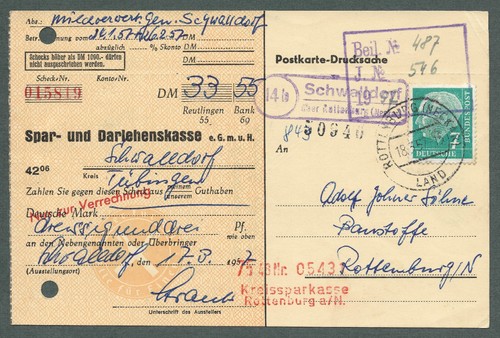 Abs.: Milchverwert. Gen. Schwalldorf
Betr.: Rechnung vom
abzüglich % Skonto DM
Schecks höher als DM 1000.- dürfen
nicht ausgeschrieben werden.
Scheck-Nr. Konto-Nr.
015819
DM 33 55
Reutlingen Bank
55 69
Spar- und Darlehenskasse e.G.m.u.H.
4206 Schwalldorf
Kreis Tübingen
Zahlen Sie gegen diesen Scheck aus meinem unserem Guthaben
Nur zur Verrechnung
Deutsche Mark Pf.
dreissigunddrei wie oben
an den Nebengenannten oder Überbringer
Schwalldorf, den 17.3. 1957
(Ausstellungsort)
Unterschrift des Ausstellers
Postkarte-Drucksache
Beil. № 487
J. № 546
19
14b
Schwalldorf
über Rottenburg
849
An
ROTTENBURG
18.3.57
LAND
7
DEUTSCHE BUNDESPOST
Adolf Johner Söhne
Baustoffe
Rottenburg/N
Nr. 0543
Kreissparkasse
Rottenburg a/N.